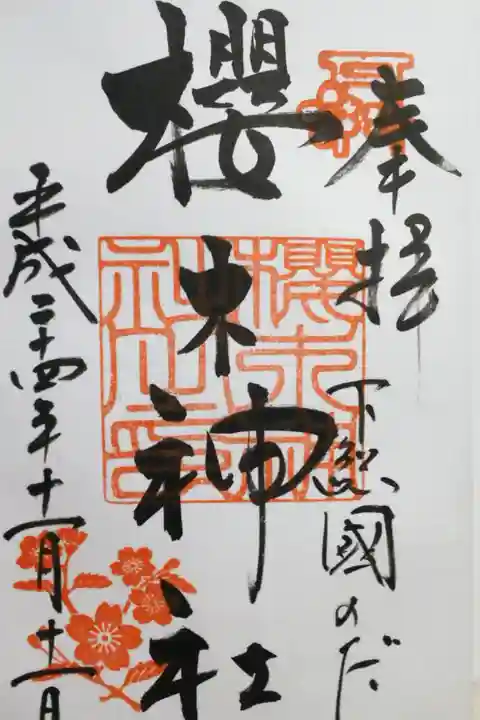 奉拝
下總國のだ
櫻木神社
平成二十四年十一月十一日
櫻木神社之印